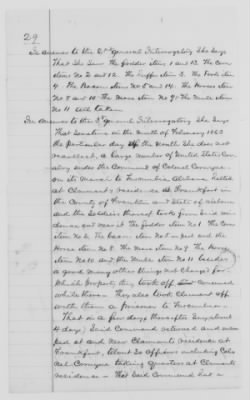 29
In answer to the 2nd General Interrogatory She Says
That She Saw the fodder item 1 and 13. The Corn
item No 2 and 12. The Item 3. The Food item
4. The Bacon item No 5 and 14. The Horses item
No 8 and 10 The Mare item No 9. The Mule item
No 11 All taken
In answer to the 3rd General Interrogatory She Says
That Sometime in the month of February 1863
the particular day of the month She does not
recollect, a large number of United States Cav-
alry under the Command of Colonel Cornyn
on its March to Tuscumbia Alabama, halted
at Claimant's residence at Frankfort in
the County of Franklin and State of Alabama
and the Soldiers thereof took from Said resi-
dence and near it the fodder item No 1 the Corn
item No 2, The Bacon item No 5 and the
Horse item No 8. The Mare item No 9 The Horse
item No 10 and the Mule item No 11 besides
a good many other things not charged for.
Which property they took off and consumed
while there. They also took Claimant off
with them a prisoner to Tuscumbia.
That in a few days thereafter Say about
4 days, Said Command returned and Camp-
ed at and near Claimants residence at
Frankfort, about 20 officers including Colo-
nel Cornyn taking quarters at Claimants
residence — That Said Command had a